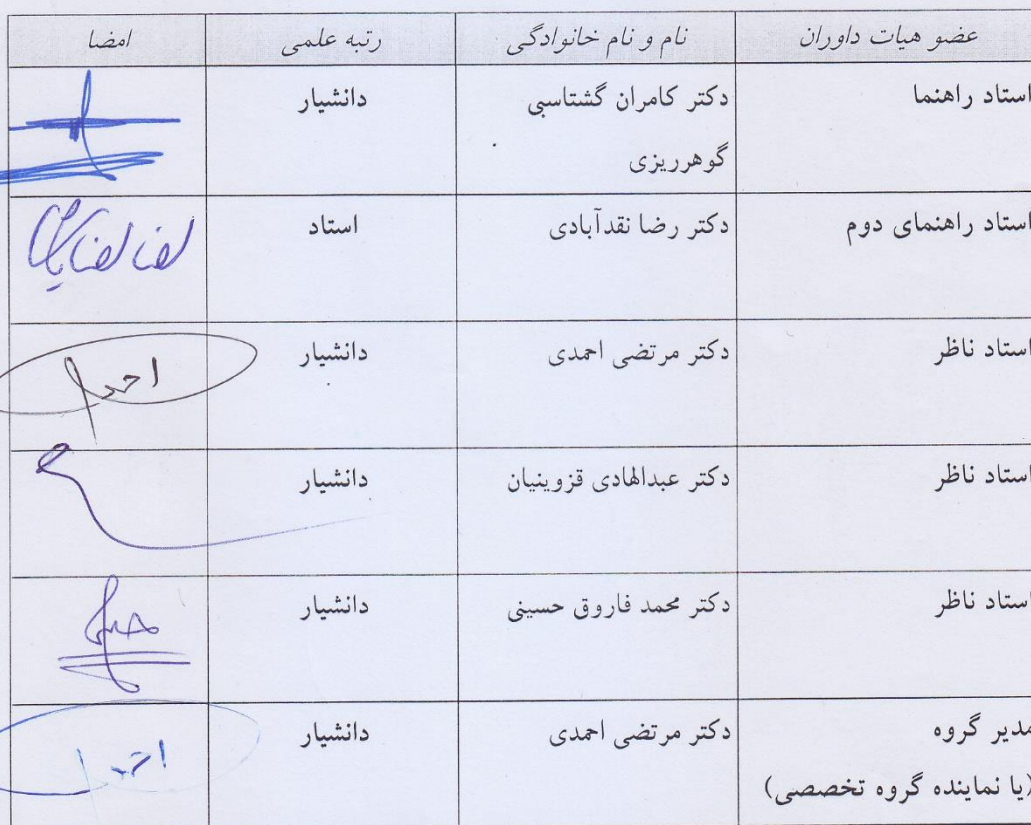 عضو هیات داوران نام و نام خانوادگی رتبه علمی امضا
استاد راهنما دکتر کامران گشتاسبی دانشیار
گوهرریزی
استاد راهنمای دوم دکتر رضا نقدآبادی استاد
استاد ناظر دکتر مرتضی احمدی دانشیار
استاد ناظر دکتر عبدالهادی قزوینیان دانشیار
استاد ناظر دکتر محمد فاروق حسینی دانشیار
مدیر گروه دکتر مرتضی احمدی دانشیار
(یا نماینده گروه تخصصی)